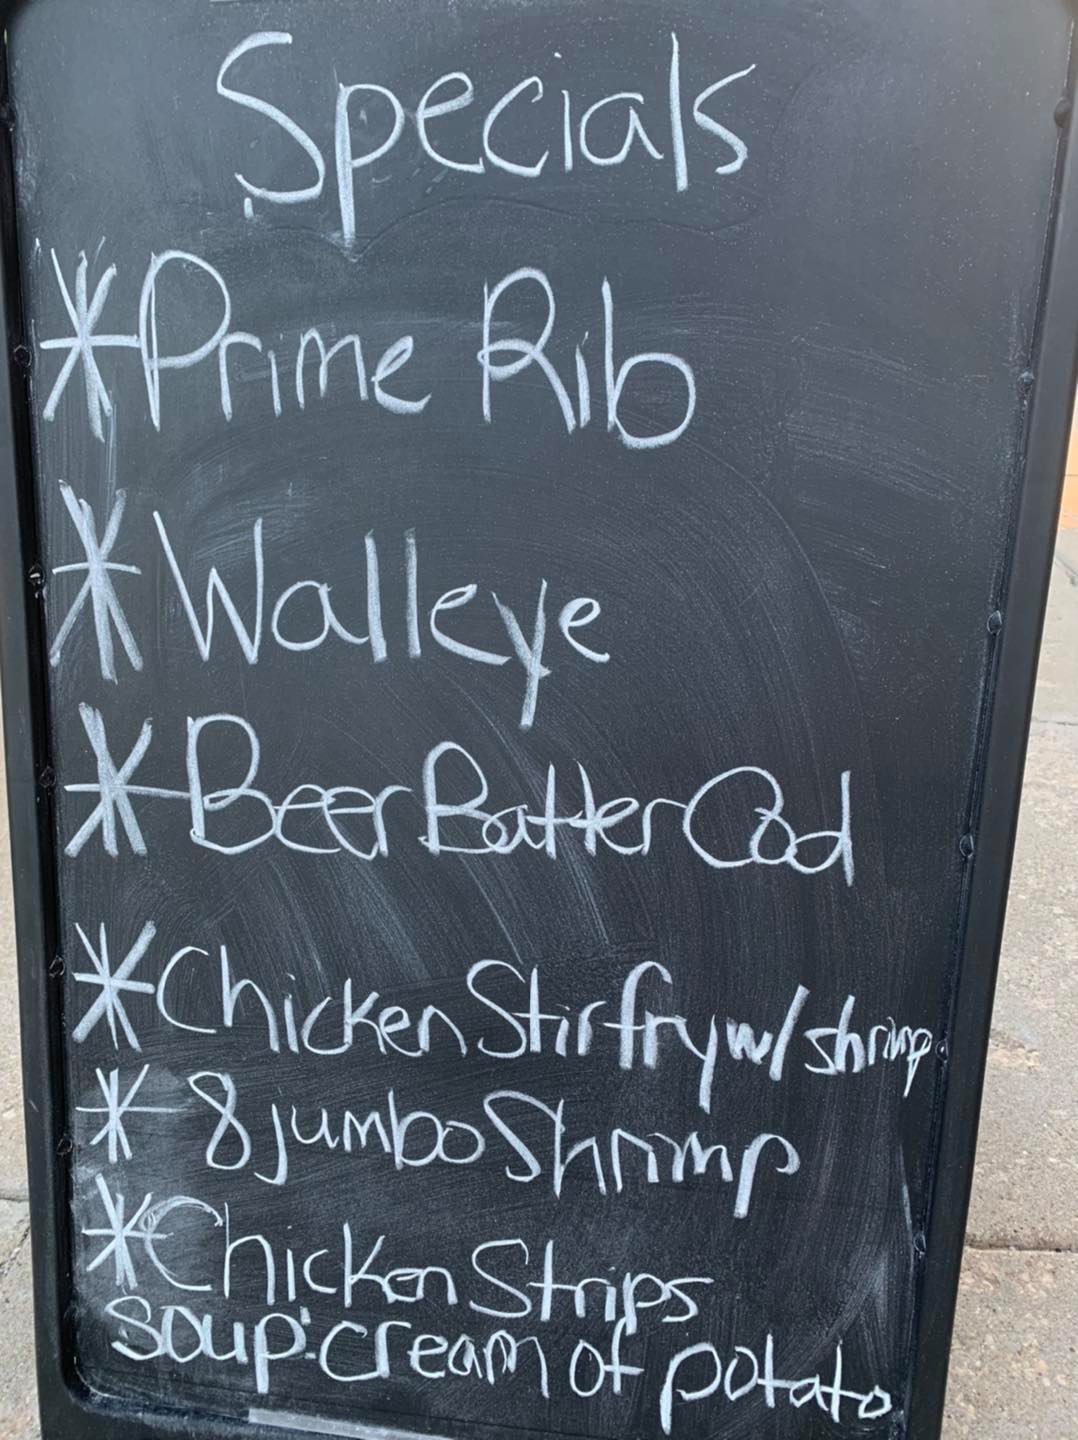 Specials
*Prime Rib
*Walleye
*Beer Batter Cod
*Chicken Stirfry w/ shrimp
*8 jumbo Shrimp
*Chicken Strips
soup: cream of potato